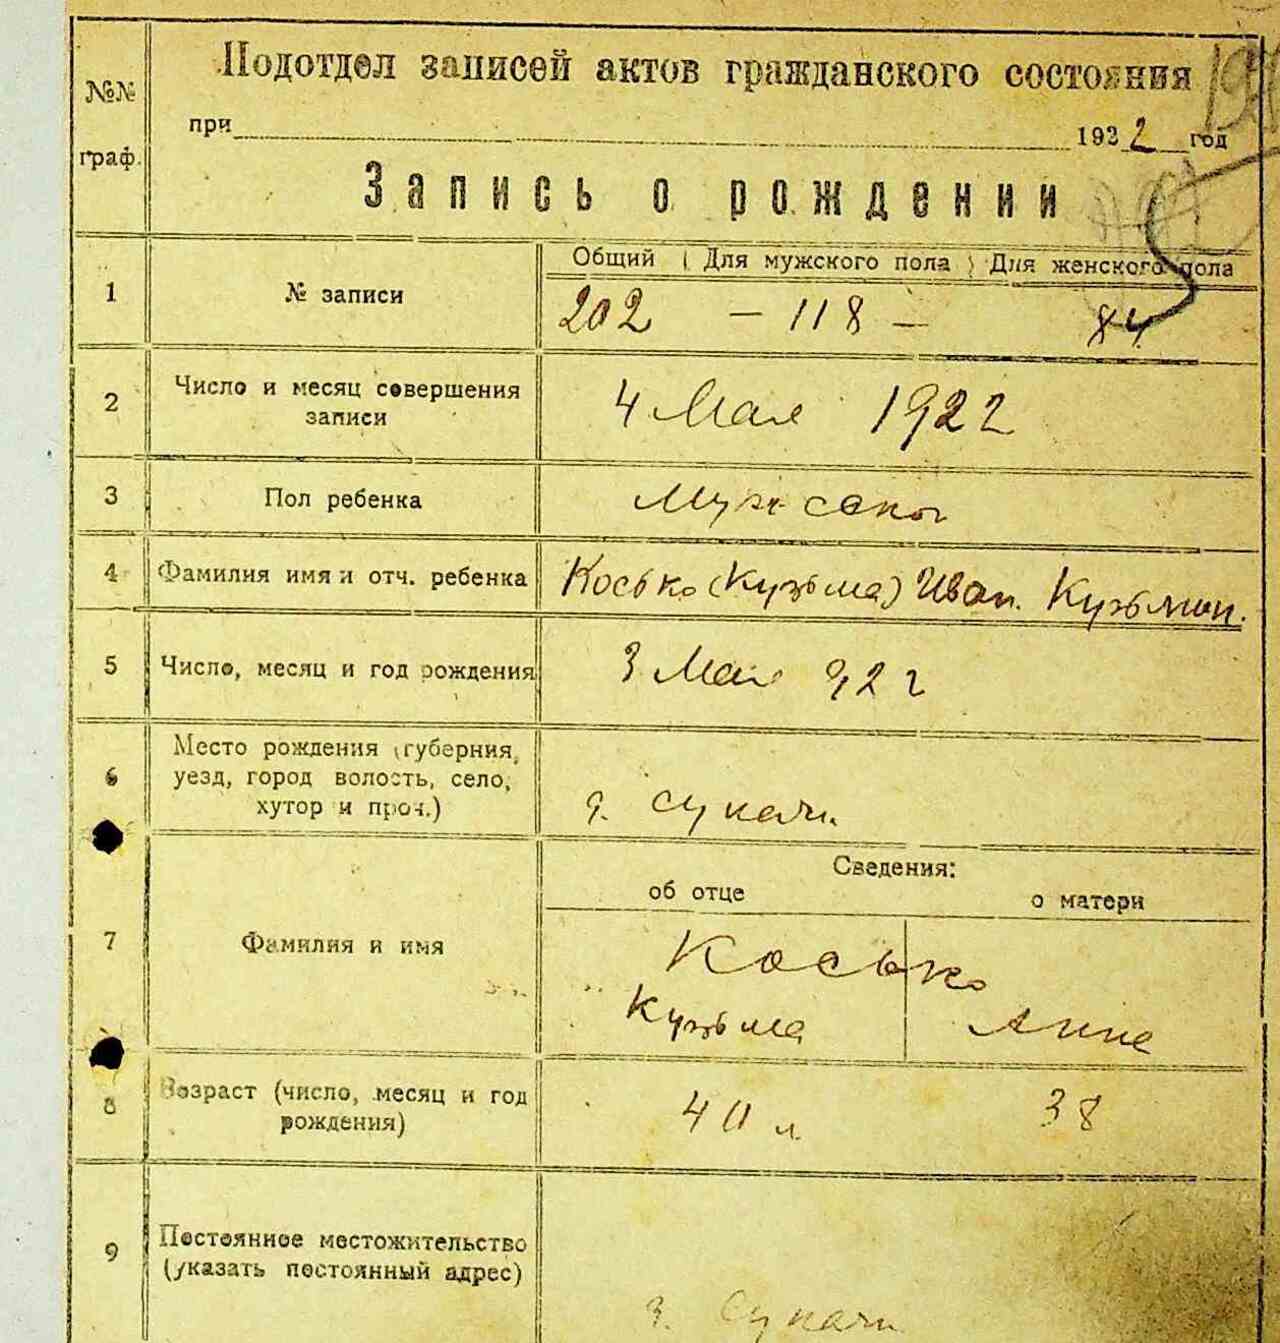 №№ граф.
Подотдел записей актов гражданского состояния
при 1922 год
Запись о рождении
Общий Для мужского пола Для женского пола
1 № записи 202 - 118 - 84
2 Число и месяц совершения записи 4 Мая 1922
3 Пол ребенка
4 Фамилия имя и отч. ребенка Косько (Кузьма) Иван. Кузьмин.
5 Число, месяц и год рождения 3 Мая 922
6 Место рождения (губерния, уезд, город волость, село, хутор и проч.) Сукачи
Сведения:
об отце о матери
7 Фамилия и имя Косько
Кузьма Анна
8 Возраст (число, месяц и год рождения) 38
9 Постоянное местожительство (указать постоянный адрес) Сукачи